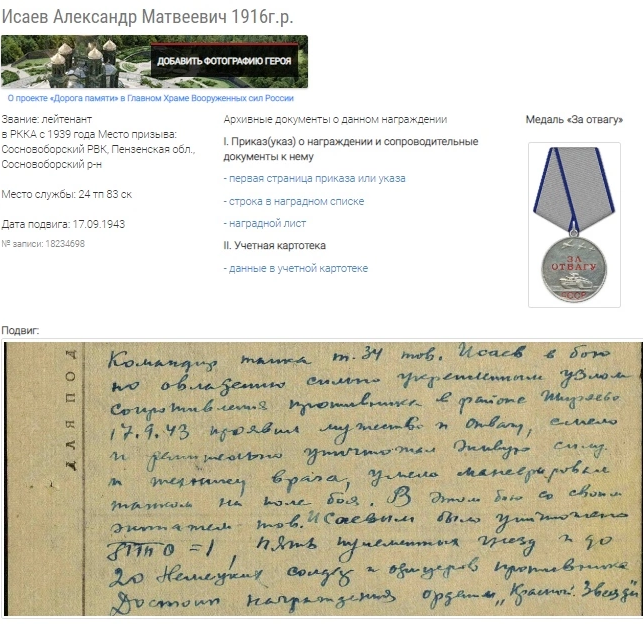 Исаев Александр Матвеевич 1916г.р.
ДОБАВИТЬ ФОТОГРАФИЮ ГЕРОЯ
О проекте «Дорога памяти» в Главном Храме Вооруженных сил России
Звание: лейтенант
в РККА с 1939 года Место призыва:
Сосновоборский РВК, Пензенская обл.,
Сосновоборский р-н
Место службы: 24 тп 83 ск
Дата подвига: 17.09.1943
№ записи: 18234698
Архивные документы о данном награждении
I. Приказ(указ) о награждении и сопроводительные
документы к нему
- первая страница приказа или указа
- строка в наградном списке
- наградной лист
II. Учетная картотека
- данные в учетной картотеке
Медаль «За отвагу»
ЗА
ОТВАГУ
СССР
Подвиг:
ДЛЯ ПОД
Командир танка т. 34 тов. Исаев в бою
по овладению сильно укрепленным узлом
сопротивления противника в районе
17.9.43 проявил мужество и отвагу, смело
и решительно уничтожал живую силу
и технику врага, умело маневрировал
танком на поле боя. В этом бою со своим
экипажем тов. Исаевым было уничтожено
ПТО = 1, пять пулеметных гнезд и до
20 Немецких солдат и офицеров противника
Достоин награждения орденом „Красной Звезды"